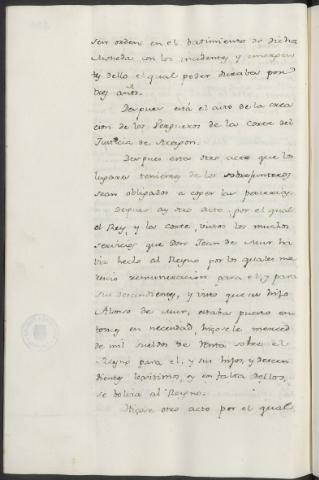 seis ordene en el batimiento de dicha
Moneda con los incidentes, y emergen
tes dello el qual poder durabas por
dos años.
Despues está el acto de la crea
cion de los Porqueros de la Corte del
Justicia de Aragon.
Despues esta otro acto que los
lugares tenientes de los sobrejunteros
sean obligados a coger las primicias.
Despues ay otro acto, por el qual
el Rey, y la corte, vistos los muchos
servicios que Don Juan de Mur ha
via hecho al Reyno por los quales me
recio remuneracion para el, y para
sus descendientes, y visto que un hijo
Alonso de Mur, estaba puesto en
tonces en necesidad, hizose le merced
de mil sueldos de renta sobre el
Reyno para el, y sus hijos, y descen
dientes legitimos, y en falta dellos,
se bolvia al Reyno.
Hizose otro acto por el qual